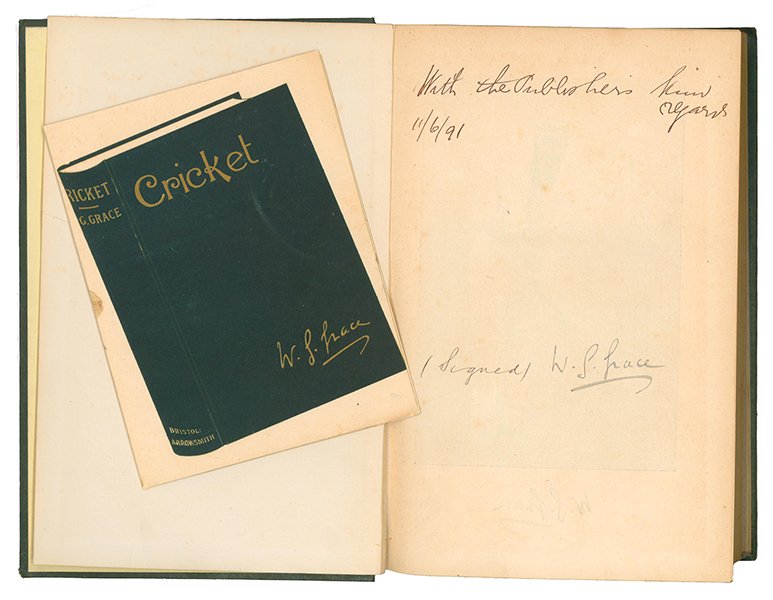 RICKET
G. GRACE
Cricket
W. G. Grace
BRISTOL:
ARROWSMITH
With the Publisher's kind
regards
11/6/91
(Signed) W. G. Grace